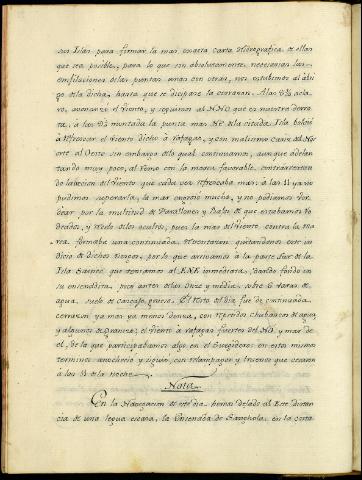 sus Islas para formar la mas exacta Carta Hidrografica de ellas
que sea posible, para lo que son absolutamente necesarias las
enfilaciones de las puntas unas con otras, nos estubimos al abri
go de la dicha, hasta que se disipase la cerrazon. A las 8¾ acla
ro, avonanzó el viento, y seguimos al NNO que es nuestra derro
ta, à las 9½ montada la punta mas NE de la citada Isla bolvió
à refrescar el viento dicho à rafagas, y con malisimo cariz del Nor
oeste al Oeste sin embargo de lo qual continuamos, aunque adelan
tando muy poco, al Remo con la marea favorable, contrarrestan
do la accion del Viento que cada vez refrescaba mas: à las 11 ya no
pudimos superarla, la mar engrosó mucha, y no podiamos bor
dear por la multitud de Farallones y Bajos de que estabamos ro
deados, y rezelo de los ocultos, pues la mar del viento, contra la ma
rea formaba una continuada, quitandonos este in
dicio de dichos riesgos, por lo que arrivamos à la parte Sur de la
Isla que teniamos al ENE inmediata, dando fondo en
su ensenadita, poco antes de las once y media, sobre 6 varas de
agua, suelo de cascajo grueso. El resto del dia fue de continuada
cerrazon ya mas ya menos densa, con repetidos chubascos de agua,
y algunos de granizo; el viento à rafagas fuertes del NO, y mar de
el, de la que participabamos algo en el surgidero: en estos mismos
terminos anochecio y siguio, con relampagos y truenos que cesaron
à las 11 de la Noche.
Nota
En la Navegacion de este dia hemos dejado al Este distan
cia de una legua escasa, la Ensenada de en la costa